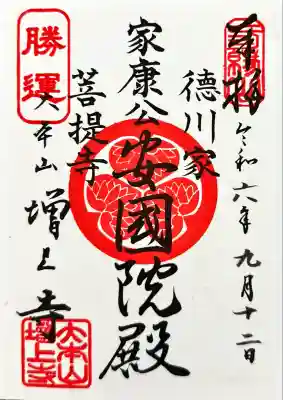 奉拝
令和六年九月十二日
徳川家
菩提寺
家康公安國院殿
勝運
大本山増上寺
大本山
増上寺